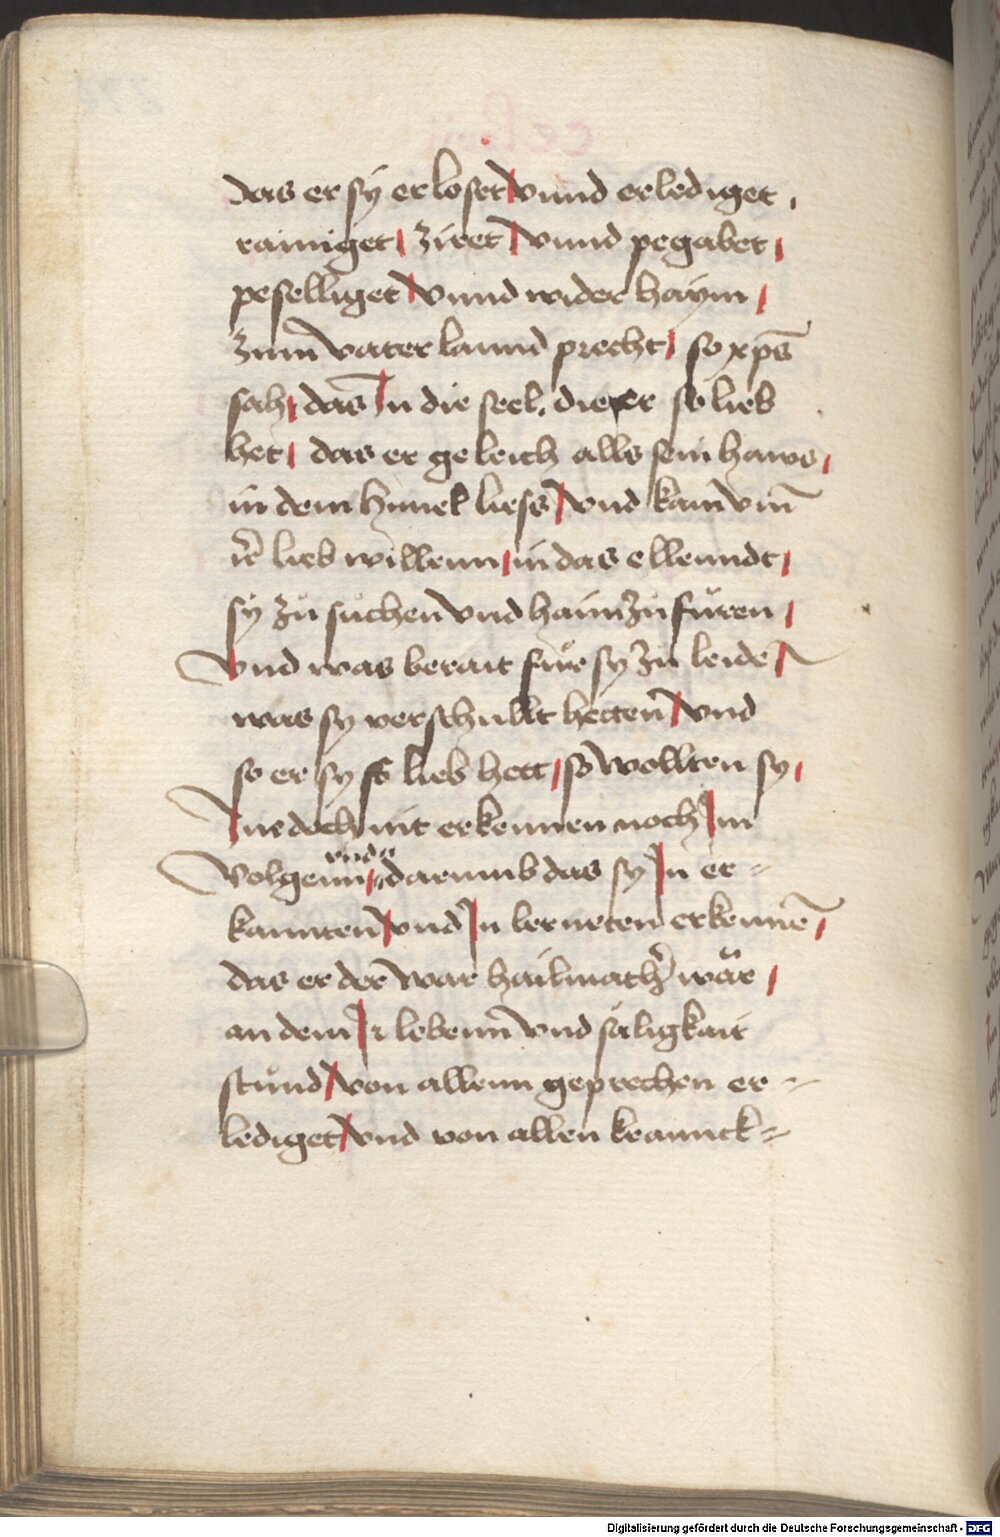 das er sy erloset vnnd erlediget ,
rainiget ziret vnnd pegabet
peselliget vnnd wider haym
zum̄ vater lannd precht so xp̄s
sah das In die seel die er so lieb
het das er geleich alls sein haws
in dem himel liess vnd kam vm̄
ir̄ lieb willenn in das ellenndt
sy zů sůchen vnd haim zů fůren
vnd was berait fůr sy zů leiden
was sy verschullt hetten vnd
so er sy so lieb hett so wollten sy
In e doch nit erkennen noch Im
volgenn vnd darumb das sy In er=
kannten vnd In lerneten erkennē
das er der war hailmacher wär
an dem Ir lebenn vnd säligkait
stůnd von allenn geprechen er=
lediget vnd von allen kranck=
Digitalisierung gefördert durch die Deutsche Forschungsgemeinschaft - DFG